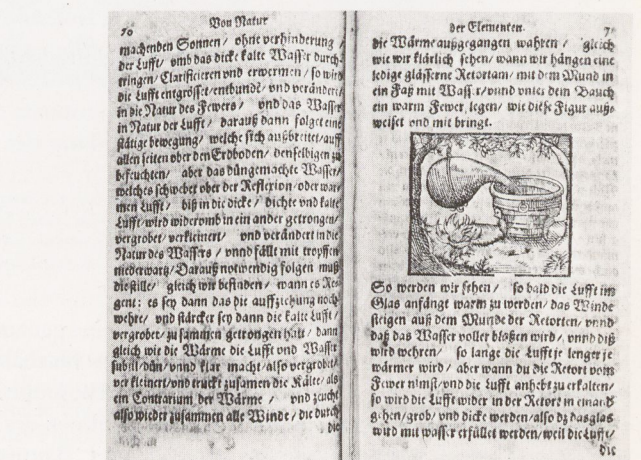 70
Von Natur
machenden Sonnen / ohne verhinderung /
der Lufft / vmb das dicke kalte Wasser durch-
tringen / Clarificieren vnd erwermen / so wird
die Lufft entgrösset / entbunde / vnd verändert /
in die Natur des Fewers / vnd das Wasser
in Natur der Lufft / darauß dann folget eine
stätige bewegung / welche sich außbreitet / auff
allen seiten ober den Erdboden / denselbigen zu
befeuchten / aber das düngemachte Wasser /
welches schwebet ober der Reflexion / oder war-
men Lufft / biß in die dicke / dichte vnd kalte
Lufft / wird wideromb in ein ander getrongen /
vergrobet / verkleinert / vnd verändert in die
Natur des Wassers / vnnd fällt mit tropffen
niederwartz / Darauß notwendig folgen muß
die stille / gleich wir befinden / wann es Re-
gent: es sey dann das die auffziehung noch
wehre / vnd stärcker sey dann die kalte Lufft /
vergrobet / zusammen getrongen hatt / dann
gleich wie die Wärme die Lufft vnd Wasser
subill / dün / vnnd klar macht / also vergrobet /
verkleinert / vnd truckt zusamen die Kälte / als
ein Contrarium der Wärme / vnd zeucht
also wieder zusammen alle Winde / die durch
die
der Elementen.
die Wärme außgegangen wahren / gleich
wie wir klärlich sehen / wann wir hängen eine
ledige glässerne Retortam / mit dem Mund in
ein Faß mit Wasser / vnnd vnter dem Bauch
ein warm Fewer legen / wie diese Figur auß-
weiset vnd mit bringt.
So werden wir sehen / so bald die Lufft im
Glas anfängt warm zu werden / das Winde
steigen auß dem Munde der Retorten / vnnd
daß das Wasser voller bloßen wird / vnnd diß
wird wehren / so lange die Lufft je lenger je
wärmer wird / aber wann du die Retort vom
Fewer nimst / vnd die Lufft anhebt zu erkalten /
so wird die Lufft wider in der Retort in einand
gehen / grob / vnd dicke werden / also dz das glas
wird mit wasser erfüllet werden / weil die Lufft /
die